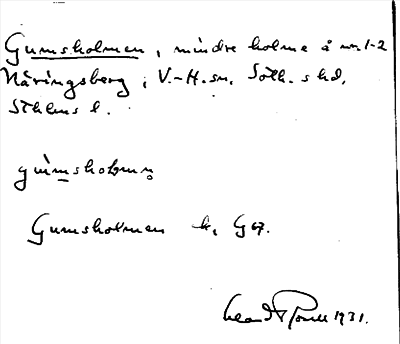 Gumsholmen, mindre holme å nr 1-2
Näringsberg, V.-H. sn, Soth. shd,
Sthlms l.
gùmshoḷmen
Gumsholmen k, G 67.
1931.